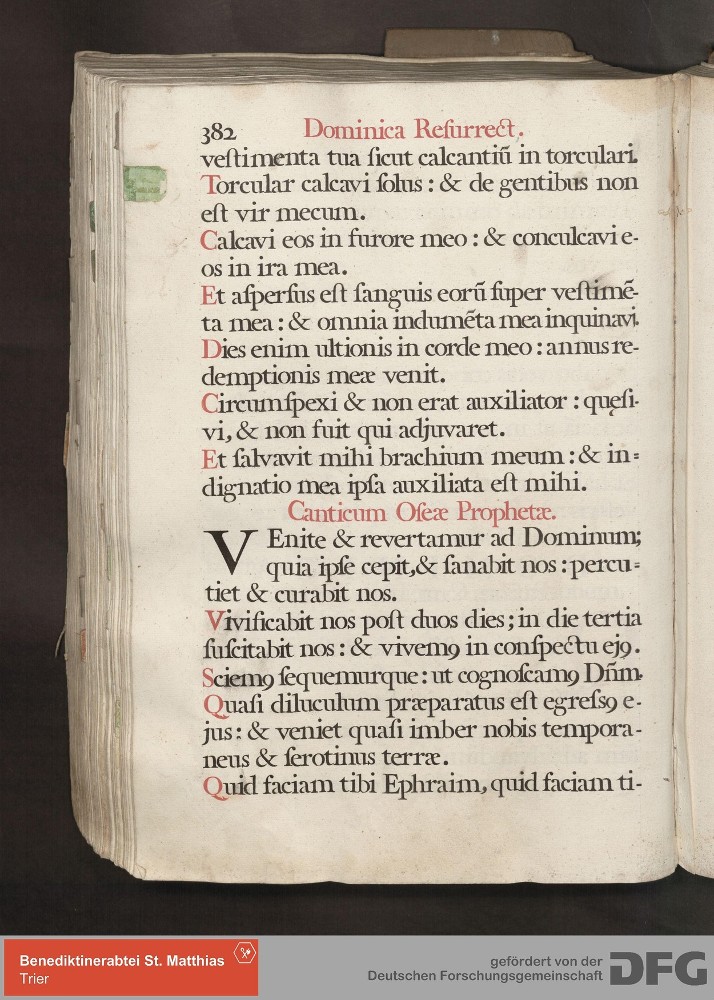 382 Dominica Reſurrect.
veſtimenta tua ſicut calcantiũ in torculari.
Torcular calcavi ſolus : & de gentibus non
eſt vir mecum.
Calcavi eos in furore meo : & conculcavi e-
os in ira mea.
Et aſperſus eſt ſanguis eorũ ſuper veſtimẽ-
ta mea : & omnia indumẽta mea inquinavi.
Dies enim ultionis in corde meo : annus re-
demptionis meæ venit.
Circumſpexi & non erat auxiliator : quęſi-
vi, & non fuit qui adjuvaret.
Et ſalvavit mihi brachium meum : & in=
dignatio mea ipſa auxiliata eſt mihi.
Canticum Oſeæ Prophetæ.
VEnite & revertamur ad Dominum;
quia ipſe cepit, & ſanabit nos : percu=
tiet & curabit nos.
Vivificabit nos poſt duos dies; in die tertia
ſuſcitabit nos : & vivemꝯ in conſpectu ejꝯ.
Sciemꝯ ſequemurque : ut cognoſcamꝯ Dñm.
Quaſi diluculum præparatus eſt egreſsꝯ e-
jus : & veniet quaſi imber nobis tempora-
neus & ſerotinus terræ.
Quid faciam tibi Ephraim, quid faciam ti-
Benediktinerabtei St. Matthias
Trier
gefördert von der
Deutschen Forschungsgemeinschaft DFG